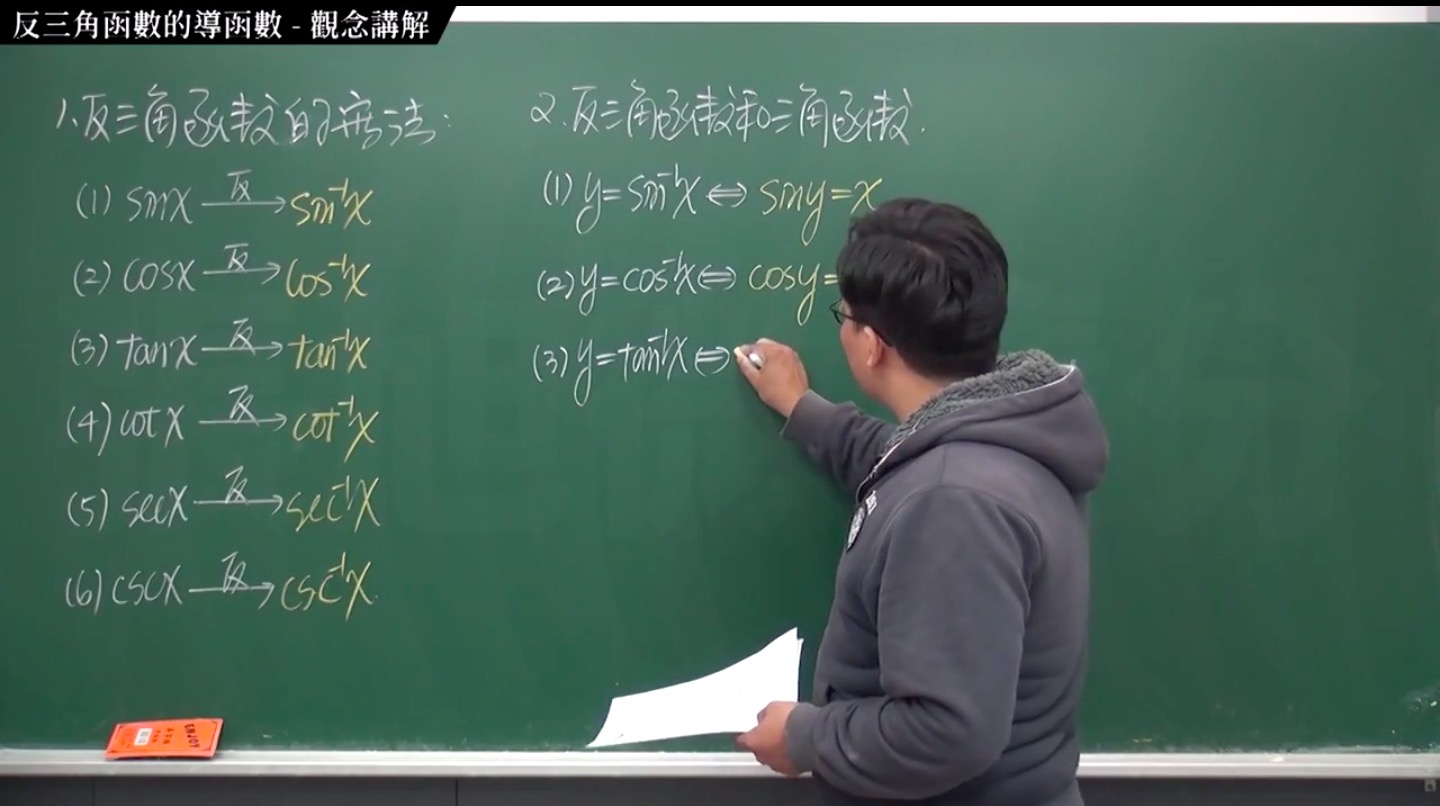 反三角函數的導函數 - 觀念講解
1. 反三角函數的寫法:
(1) sinx 反→ sin⁻¹x
(2) cosx 反→ cos⁻¹x
(3) tanx 反→ tan⁻¹x
(4) cotx 反→ cot⁻¹x
(5) secx 反→ sec⁻¹x
(6) cscx 反→ csc⁻¹x.
2. 反三角函數和三角函數.
(1) y=sin⁻¹x ⇔ siny=x
(2) y=cos⁻¹x ⇔ cosy=
(3) y=tan⁻¹x ⇔
ENJOY